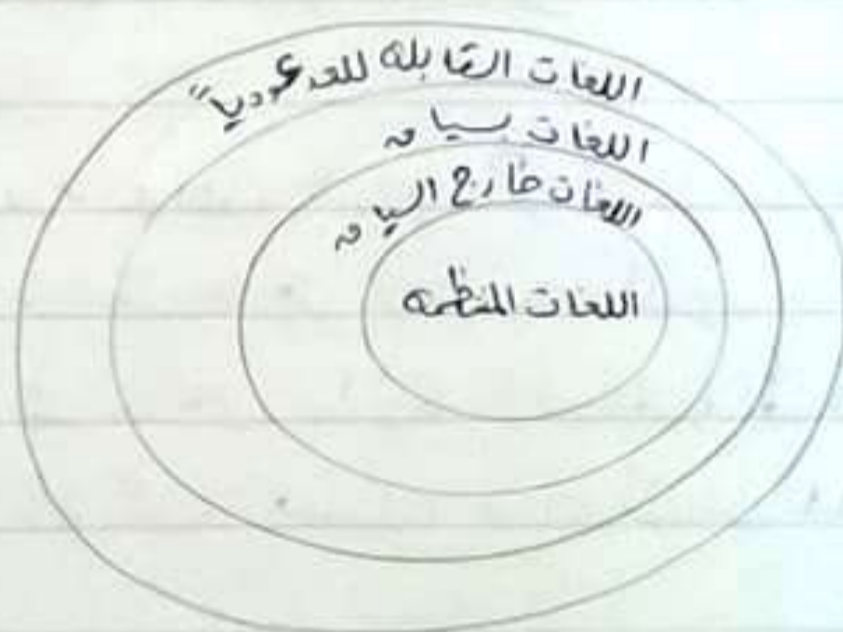 اللغات القابله للعد عودياً
اللغات بسياق
اللغات خارج السياق
اللغات المنظمه